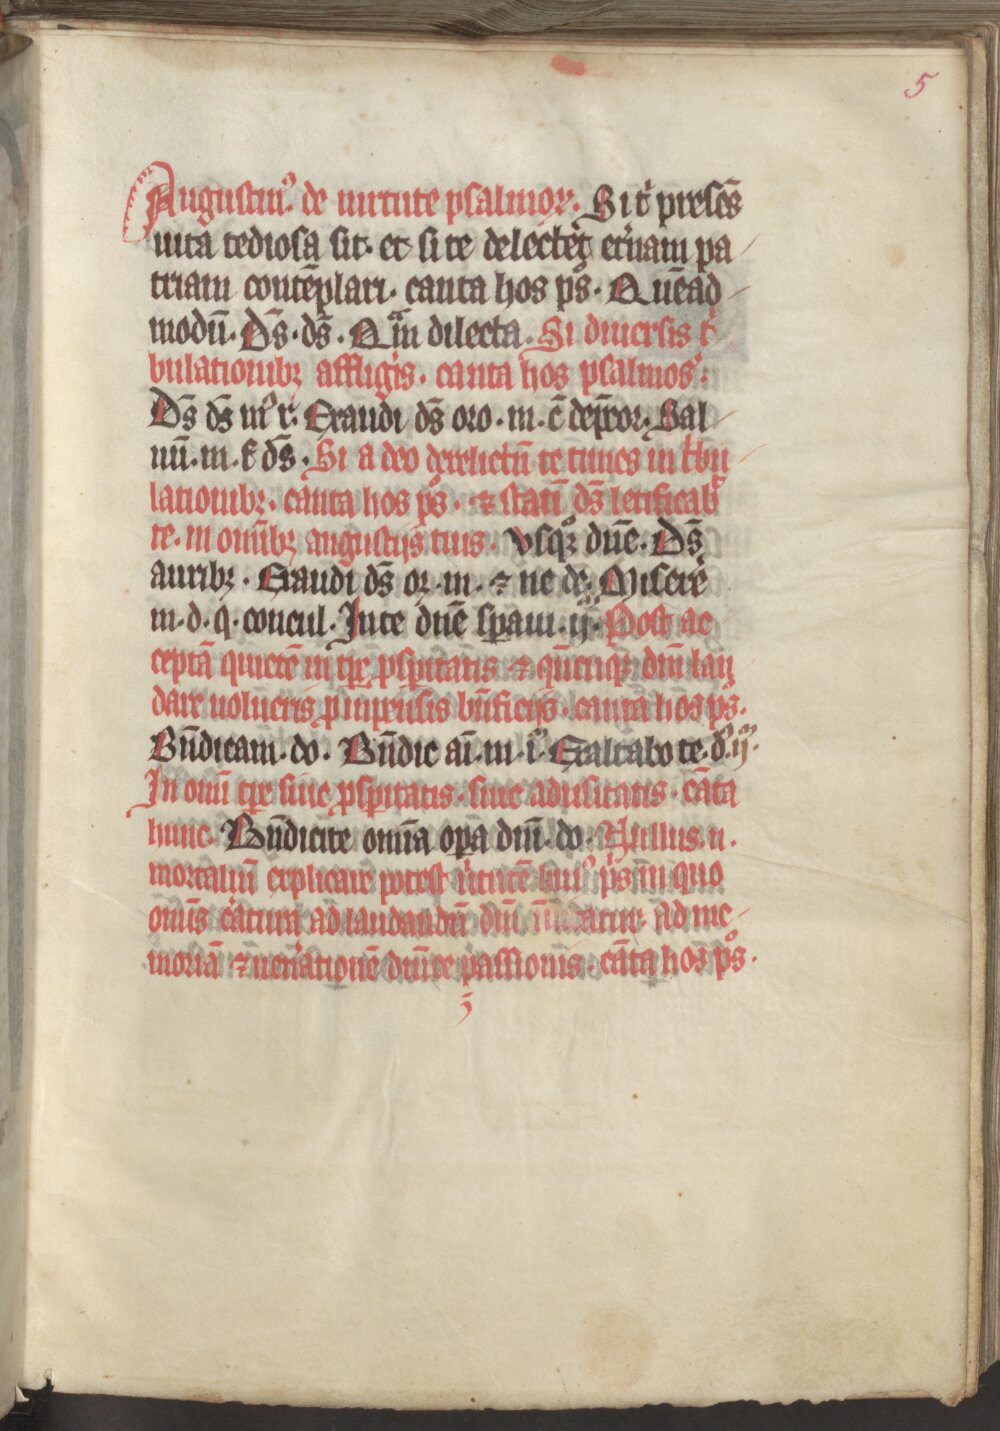 5
Augustin᷒. de uirtute psalmoꝝ. Si t̾ presēs
uita tediosa sit. et si te delectet et̾nam pa
triam contēplari. canta hos ps̄. Quēad
modū. Ds̄. ds̄. Qͣm dilecta. Si diuersis t̾
bulationibꝫ affligis. canta hos psalmos.
Ds̄ ds̄ m᷒ r. Exaudi ds̄ oro. m. c̄ dep̄cor. Sal
uū. m. f. ds̄. Si a deo derelictū te times in tⁱbu
lationibꝫ. canta hos ps̄. ⁊ statī ds̄ letificab̾
te. in omībꝫ angustijs tuis. Vsqꝫ dn̄e. Ds̄
auribꝫ. Exaudi ds̄ or. m. ⁊ ne de. Miserē
m. d. q. concul. In te dn̄e sꝑaui. ij. Post ac
ceptā quietē in tꝑe ꝓspitatis ⁊ qn̄cūqꝫ dnm̄ lau
dare uolueris ꝓ inpensis bn̄ficijs. canta hos ps̄.
Bn̄dicam. do. Bn̄dic aī. m. i᷒. Exaltabo te. d. ij.
In omī tꝑe siue ꝓspitatis. siue adusitatis. cāta
hunc. Bn̄dicite omīa oꝑa dnī. do. Nullus. n.
mortaliū explicare potest ūtutē hui᷒ ps̄ in quo
omīs c̄atura ad laudandū dnm̄ inuitatur. Ad me
moriā ⁊ uen̄ationē dnīce passionis. cāta hos ps̄.